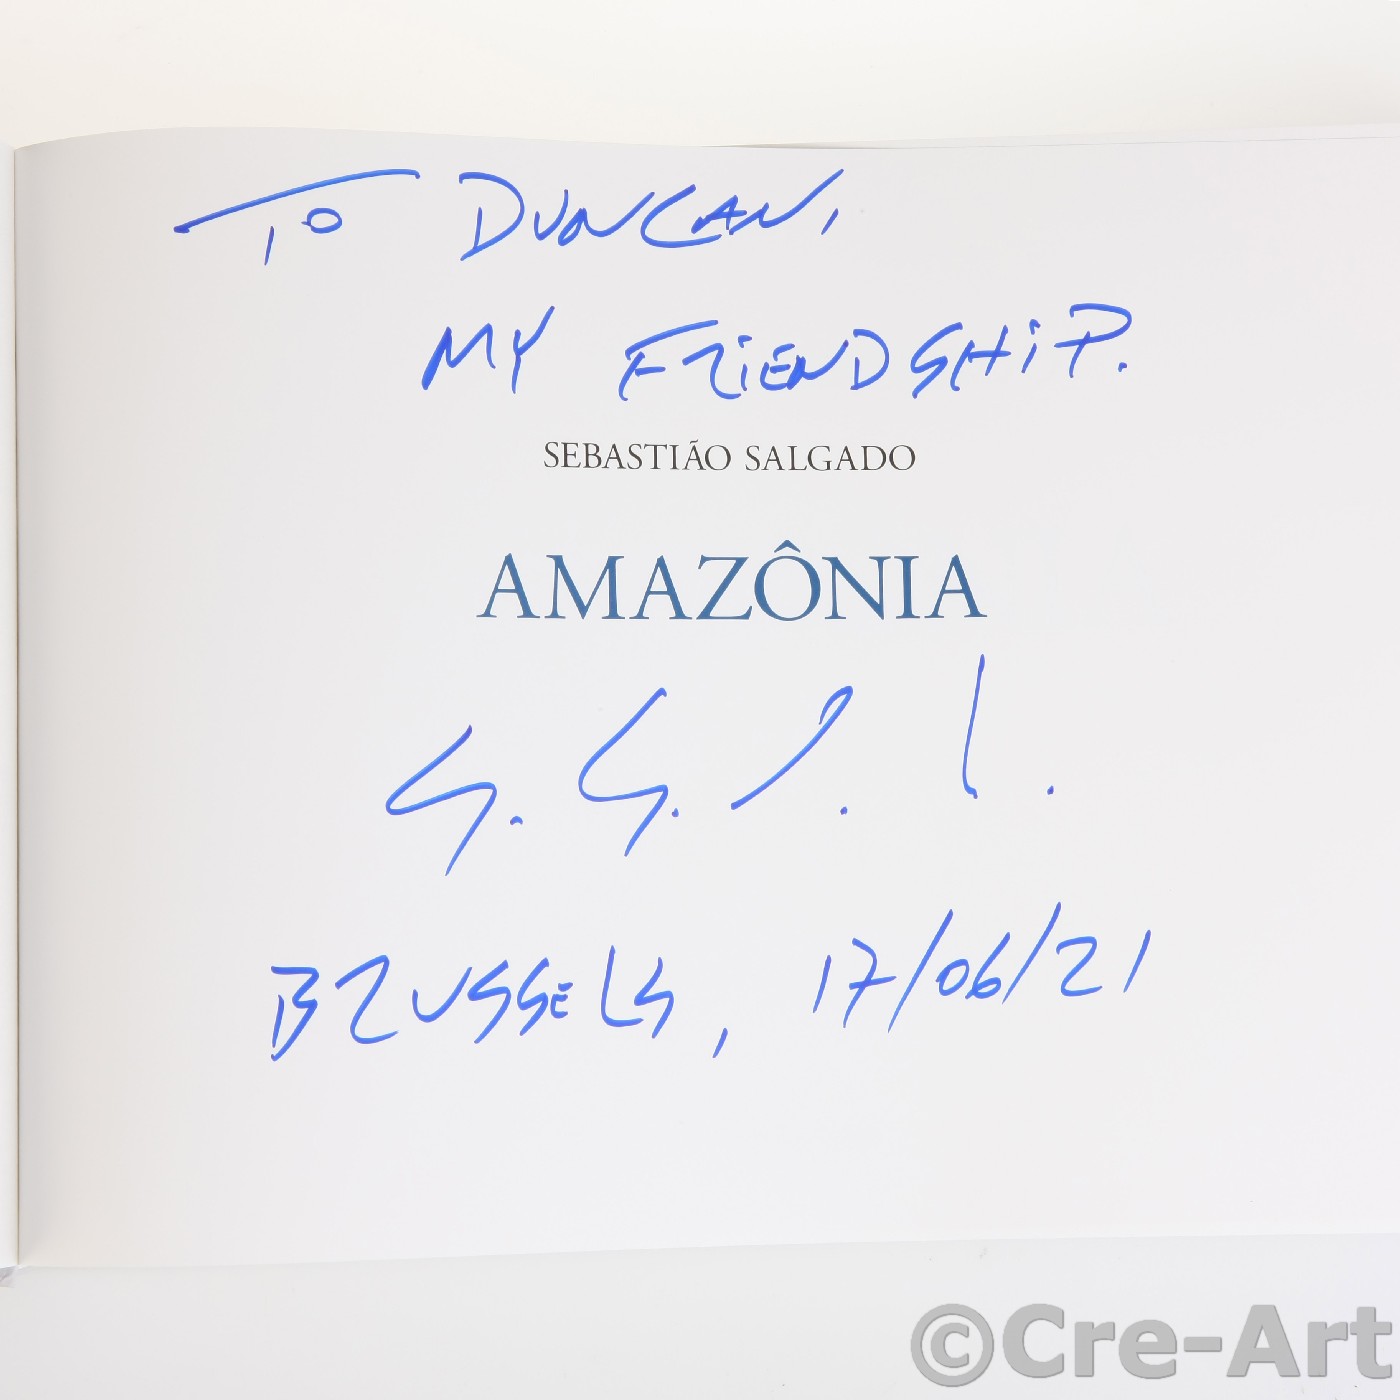 TO DUNCAN,
MY FRiENDSHiP.
SEBASTIÃO SALGADO
AMAZÔNIA
BRUSSELS, 17/06/21
©Cre-Art